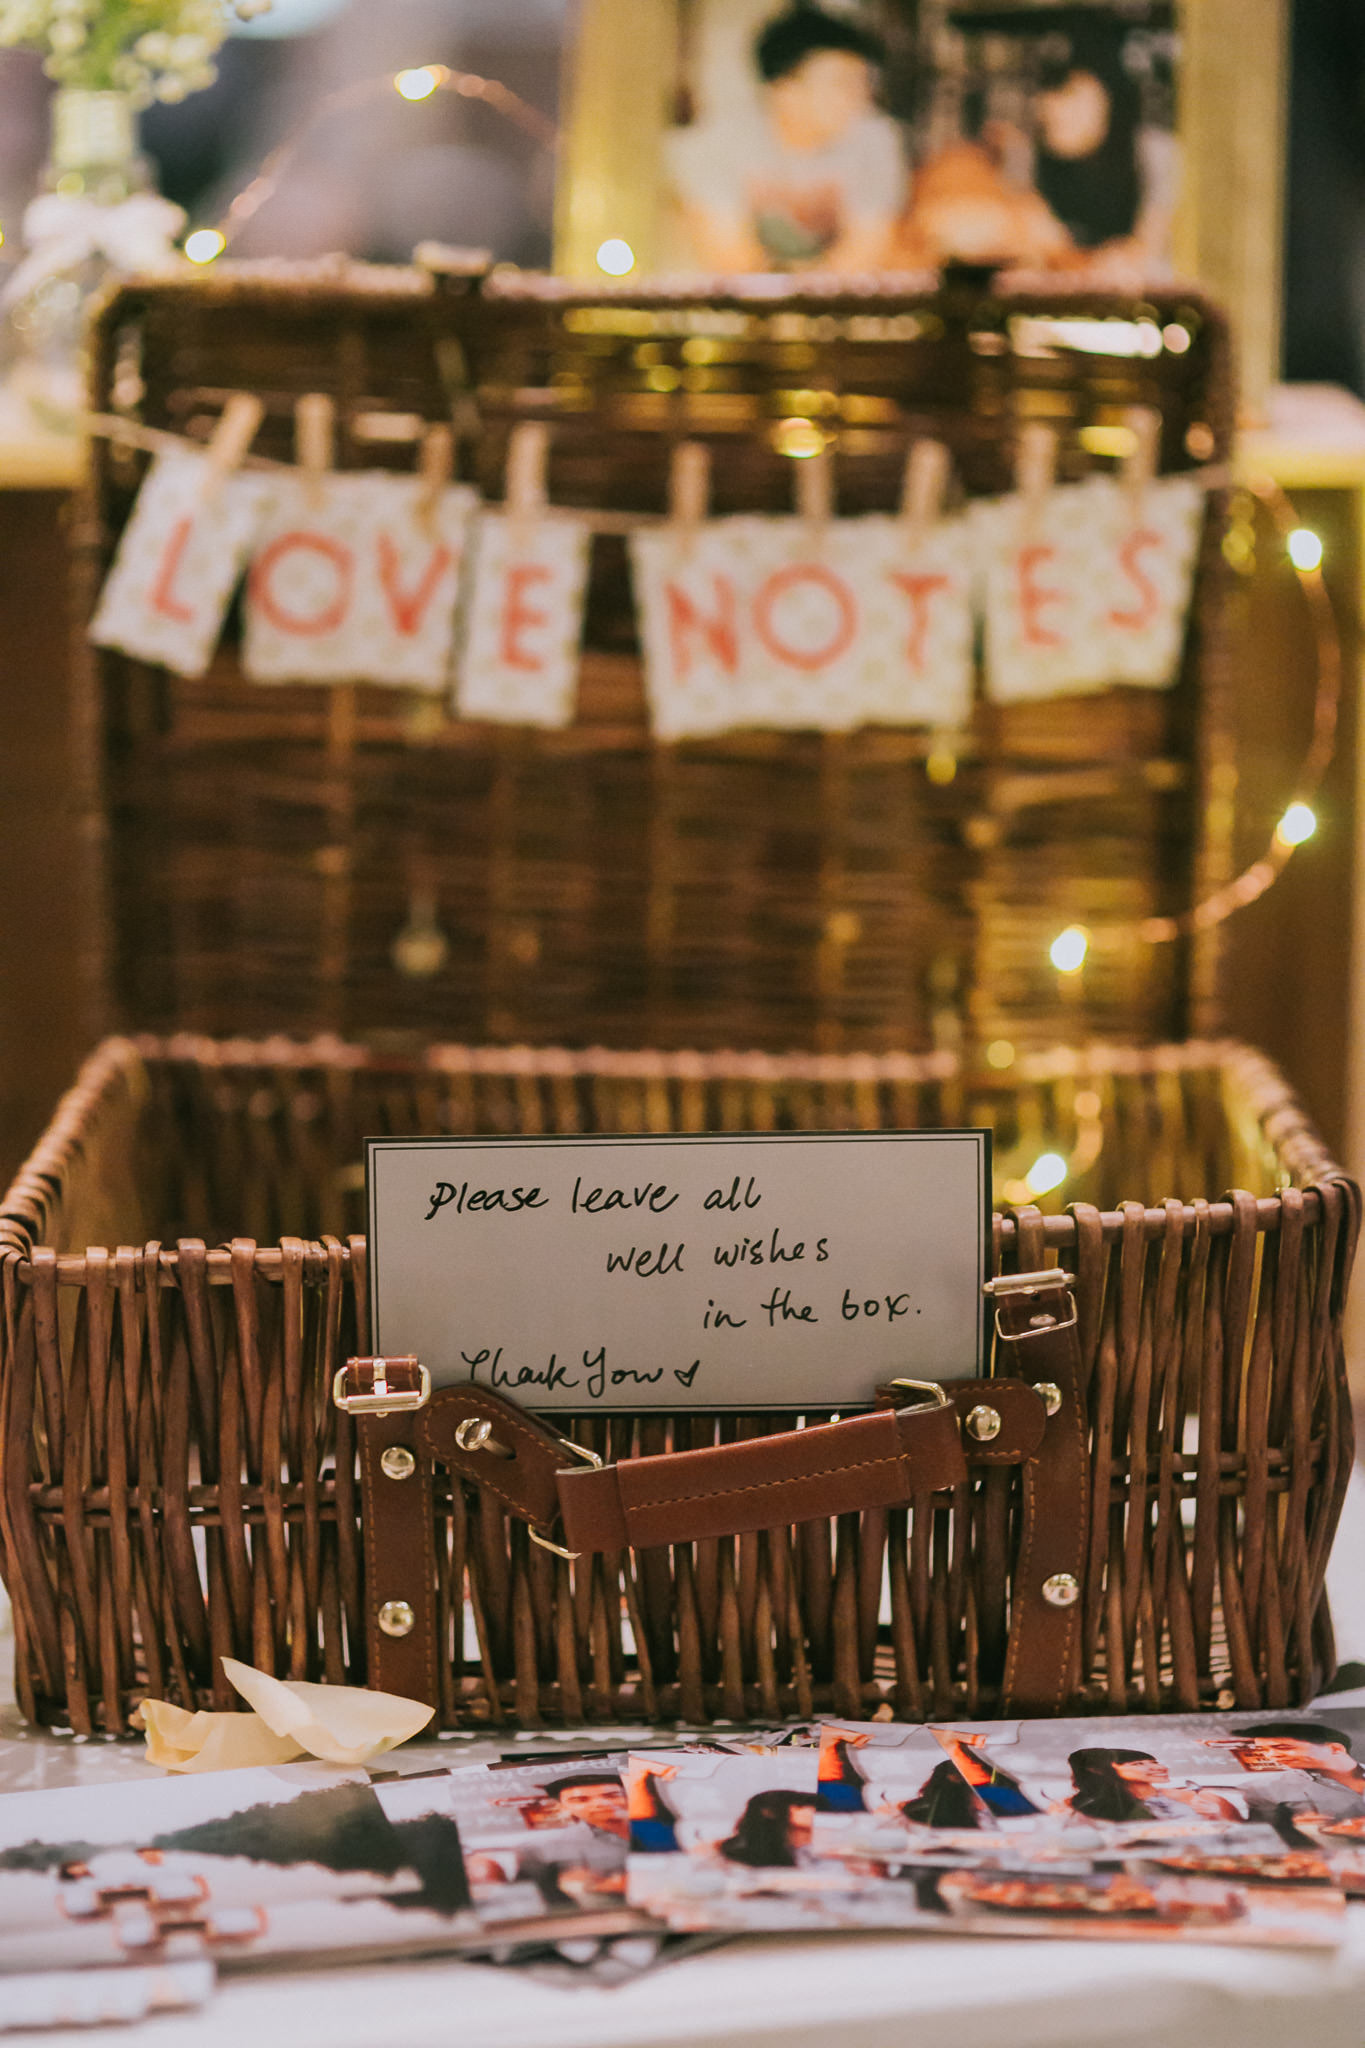 LOVE NOTES
Please leave all
well wishes
in the box.
Thank You